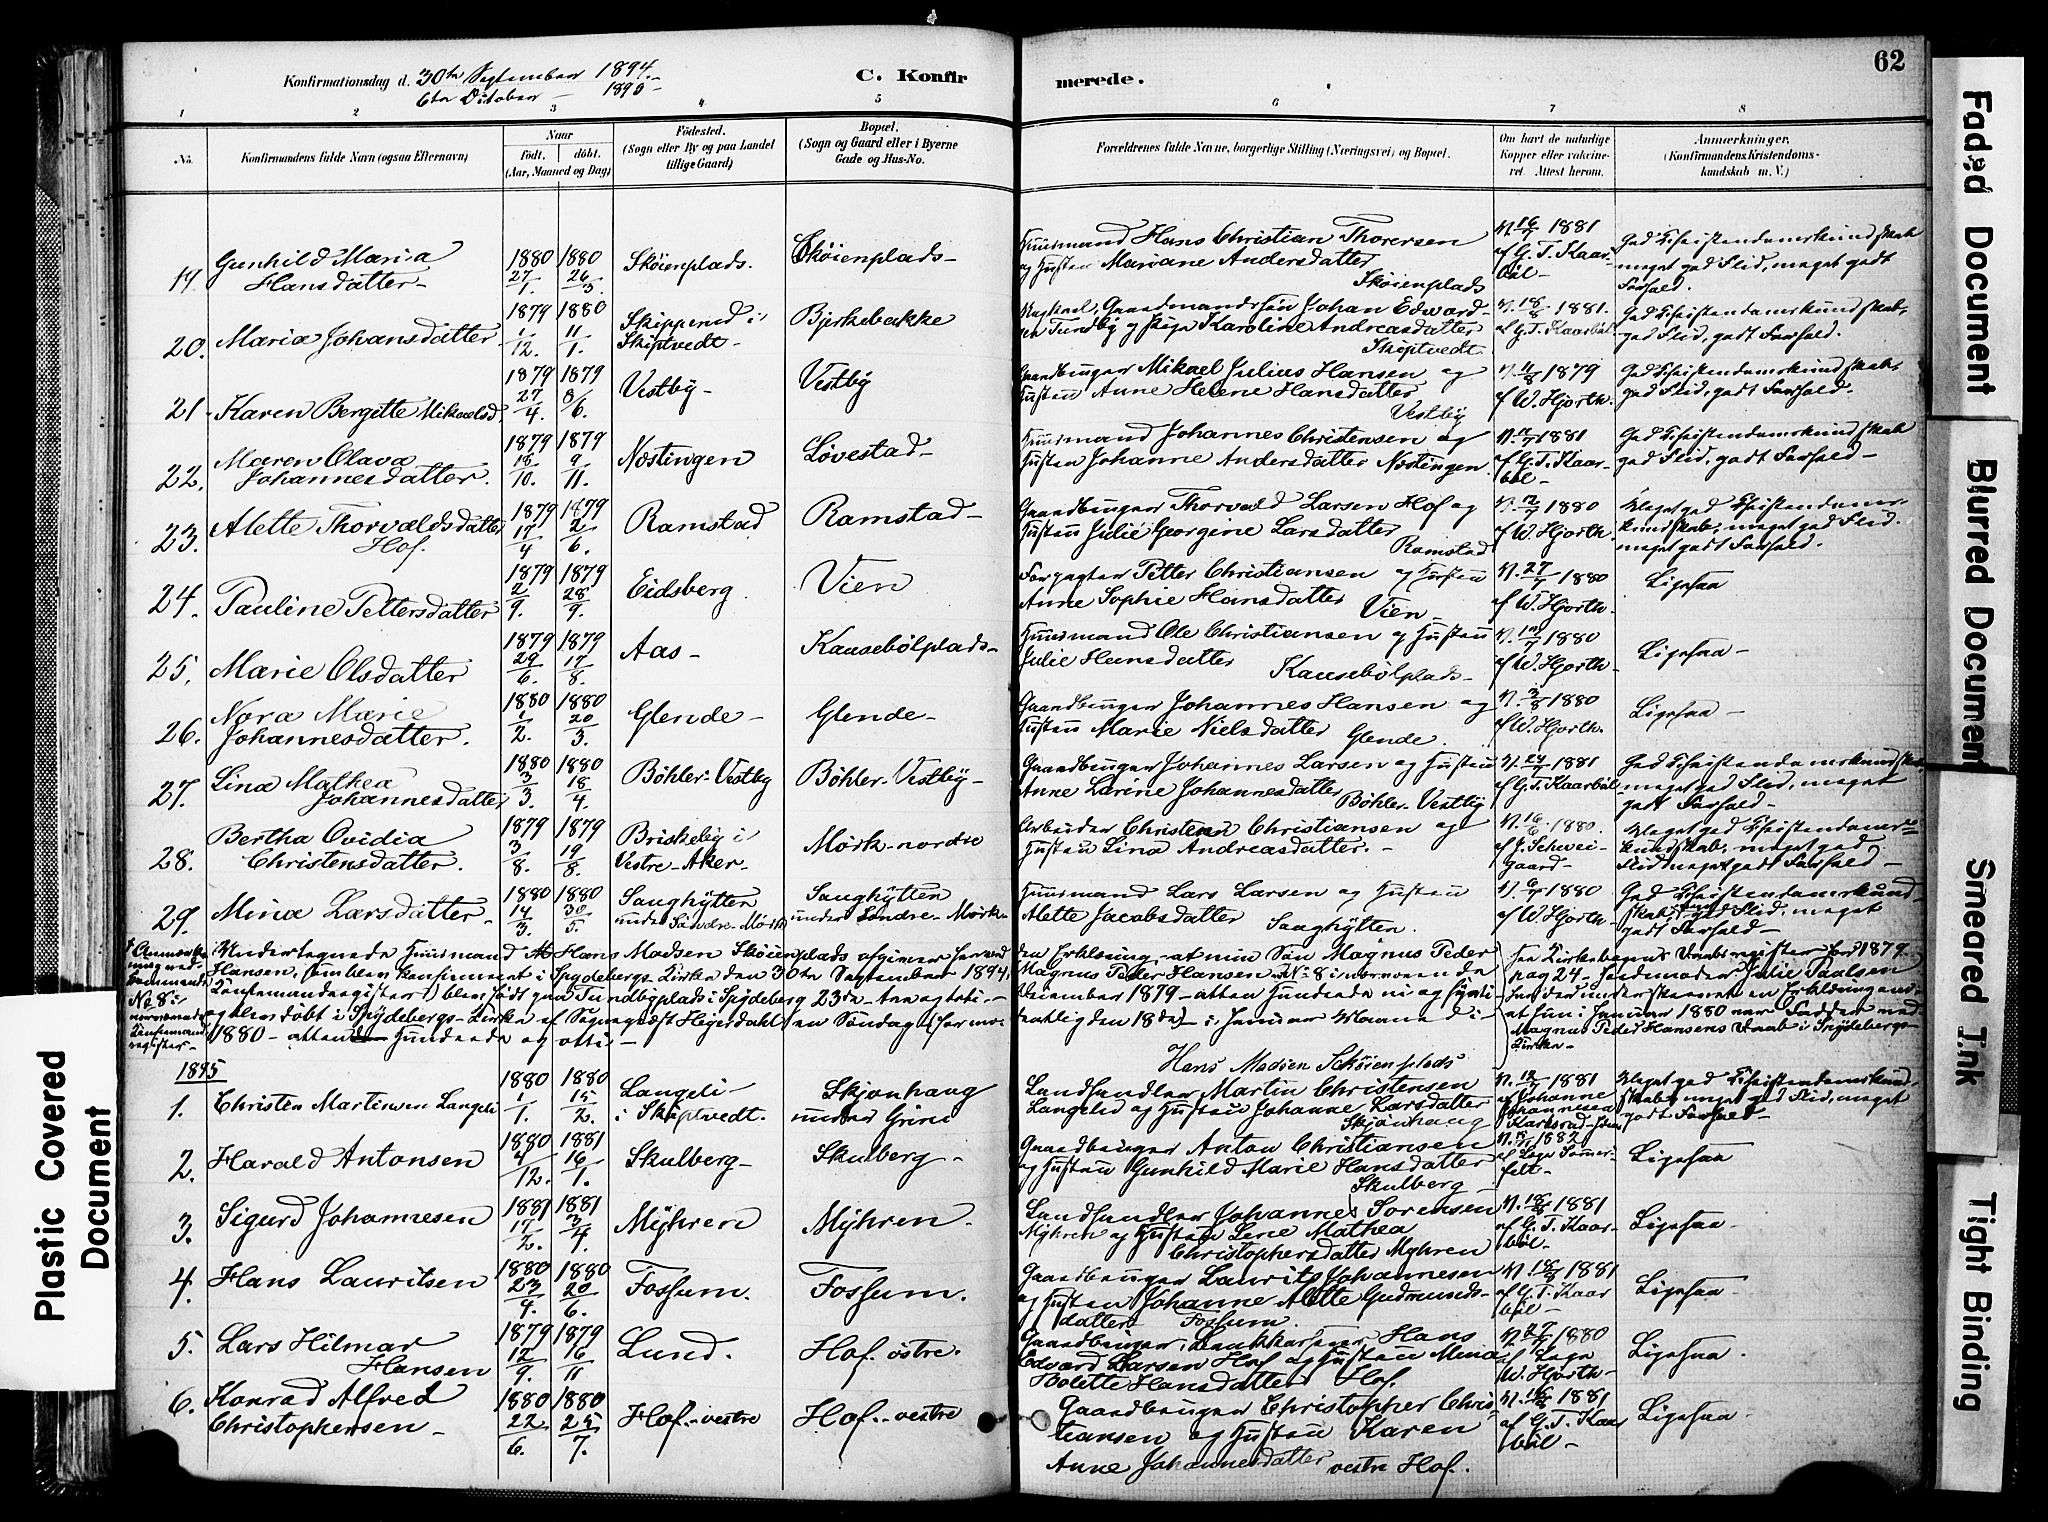 62
Konfirmationsdag d. 30te September 1894.
6te October 1895
C. Konfirmerede.
1 2 3 4 5 6 7 8
No.
Konfirmandens fulde Navn (ogsaa Efternavn)
Naar
født. døbt.
(Aar, Maaned og Dag)
Fødested.
(Sogn eller By og paa Landet
tillige Gaard)
Bopæl.
(Sogn og Gaard eller i Byerne
Gade og Hus-No.
Forældrenes fulde Navne, borgerlige Stilling (Næringsvei) og Bopæl.
Om havt de naturlige
Kopper eller vakcine-
ret. Attest herom.
Anmærkninger.
(Konfirmandens Kristendoms-
kundskab m. V.)
19. Gunhild Maria Hansdatter 1880 27/1. 1880 26/3. Skøienplads. Skøienplads
Huusmand Hans Christian Thorersen
og Hustru Mariane Andersdatter
Skøienplads
V. 16/7 1881
af G. T. Kaar-
bøl
God Christendomskundskab
meget god Flid, meget godt
Forhold.
20. Maria Johansdatter 1879 1/12. 1880 11/1. Skipperud i Skiptvedt Bjerkebakke
Gaardmandssøn Johan Edvard-
sen Tundby og Pige Karoline Andreasdatter
Skiptvedt
V. 18/8 1881.
af G. T. Kaarbøl
God Christendomskundskab,
god Flid, godt Forhold.
21 Karen Bergitte Mikaelsd. 1879 27/4. 1879 8/6. Vestby Vestby
Gaardbruger Mikael Julius Hansen og
Hustru Anne Helene Hansdatter
Vestby
1879
af W. Hjorth.
God Christendomskundskab,
god Flid, godt Forhold.
22. Maren Olava Johannesdatter. 1879 18/10. 1879 9/11. Nøstingen Løvestad
Huusmand Johannes Christensen og
Hustru Johanne Andersdatter Nøstingen
1881
af G. T. Kaar-
bøl
God Christendomskundskab
god Flid, godt Forhold
23. Alette Thorvaldsdatter Hof. 1879 17/4 1879 2/6. Ramstad Ramstad
Gaardbruger Thorvald Larsen Hof og
Hustru Julie Georgine Larsdatter
Ramstad
1880
af W. Hjorth.
Meget god Christendoms-
kundskab, meget god Flid.
meget godt Forhold.
24. Pauline Pettersdatter 1879 2/9. 1879 28/9. Eidsberg. Vien
Forpagter Petter Christiansen og Hustru
Anne Sophie Hansdatter Vien
V. 27/7 1880
af W. Hjorth
Ligesaa
25. Marie Olsdatter 1879 29/6. 1879 17/8. Aas Kaasebølplads
Huusmand Ole Christiansen og Hustru
Julie Hansdatter Kaasebølplads
1880
af W. Hjorth
Ligesaa
26. Nora Marie Johannesdatter. 1880 1/2. 1880 20/3. Glende Glende
Gaardbruger Johannes Hansen og
Hustru Marie Nielsdatter Glende.
V. 3/8 1880
af W. Hjorth.
Ligesaa
27. Lina Mathea Johannesdatter 1880 3/3. 1880 18/4. Bøhler-Vestby Bøhler-Vestby
Gaardbruger Johannes Larsen og Hustru
Anne Larine Johannesdatter
Bøhler-Vestby
1881
af G. T. Kaarbøl
God Christendomskundskab,
meget god Flid, meget
godt Forhold
28. Bertha Ovidia Christensdatter. 1879 3/8. 1879 19/8. Briskeby i Vestre-Aker Mørk-nordre
Arbeider Christen Christiansen og
Hustru Lina Andreasdatter.
V. 16/6 1880.
af J. Schwei-
gaard
Meget god Christendoms-
kundskab, meget god
Flid meget godt Forhold
29. Mina Larsdatter 1880 14/3. 1880 30/5. Saughytten under Søndre-Mørk Saughytten under Søndre-Mørk
Huusmand Lars Larsen og Hustru
Alette Jacobsdatter Saaghytten.
1880
af W. Hjorth
God Christendomskund-
skab, god Flid, meget
godt Forhold
Undertegnede Huusmand Hans Madsen Skøienplads afgiver herved den Erklæring, at min Søn Magnus Peder
Hansen, som blev konfirmeret i Spydebergs Kirke den 30te September 1894, Magnus Peder Hansen No 8 i nærværende
Konfirmandregister) blev født paa Tundbyplads i Spydeberg 23de December 1879 - atten Hundrede ni og sytti
og blev døbt i Spydebergs Kirke af Sogneprest Hejerdahl en Søndag 18de i Januar Maaned
1880 - atten Hundrede og otti
Hans Madsen Schøienplads
No 8 i
Konfirmand-
register
Kirkebogens Daabsregister for 1879
pag 24.
1880
Magnus Peder Hansens Daab i Spydebergs-
Kirke
1895
1. Christen Martinsen Langeli 1880 1/1. 1880 15/2. Langeli i Skiptvedt. Skjønhaug under Grini
Landhandler Martin Christensen
Langelid og Hustru Johanne Larsdatter
Skjønhaug
1881
af Johanne
Johannesen
Meget god Christendomskund-
skab, meget god Flid, meget
godt Forhold
2. Harald Antonsen 1880 4/12. 1881 16/1. Skulberg Skulberg
Gaardbruger Anton Christiansen
og Hustru Gunhild Marie Hansdatter
Skulberg
1882
af Læge Sømer-
felt
Ligesaa
3. Sigurd Johannesen 1881 17/2. 1881 3/4. Myhren Myhren.
Landhandler Johannes Sørensen
Myhren og Hustru Lene Mathea
Christophersdatter Myhren
V. 18/8 1881
af G. T. Kaar-
bøl
Ligesaa
4. Hans Lauritsen 1880 23/4. 1880 20/6. Fossum. Fossum.
Gaardbruger Laurits Johannesen
og Hustru Johanne Alette Gudmunds-
datter Fossum.
V. 18/8 1881
af G. T. Kaar
bøl
Ligesaa
5. Lars Hilmar Hansen 1879 12/9. 1879 16/11 Lund. Hof østre.
Gaardbruger, Hans
Edvard Larsen Hof og Hustru Mina
Bolette Hansdatter Hof.
V. 27/7 1880
af Læge
W. Hjorth
Ligesaa
6. Konrad Alfred Christophersen 1880 22/6. 1880 25/7. Hof-vestre Hof-vestre
Gaardbruger Christopher Chris-
tiansen og Hustru Karen
Anne Johannesdatter vestre Hof.
1881
af G. T. Kaar
bøl
Ligesaa
Faded Document
Blurred Document
Smeared Ink
Tight Binding
Plastic Covered
Document